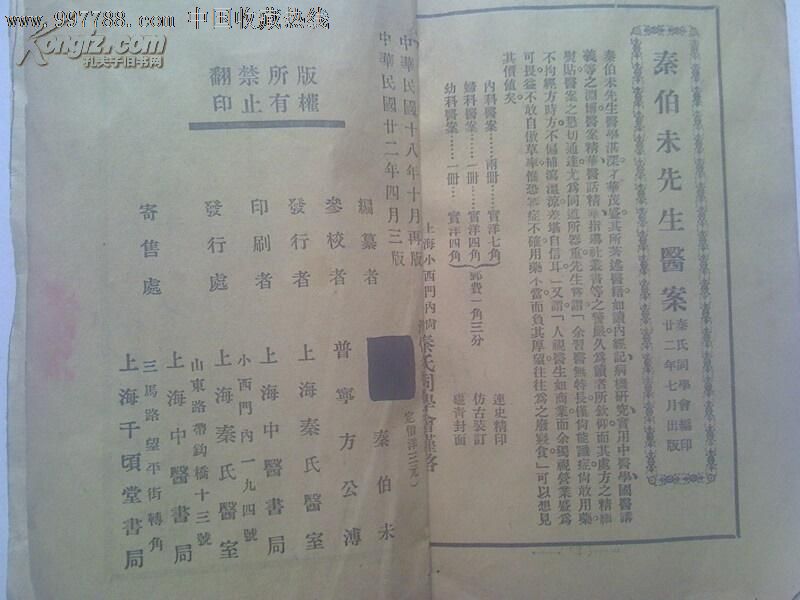 www.997788.com 中国收藏热线
Kongfz.com
孔夫子旧书网
秦伯未先生醫案
秦氏同學會編印
廿二年七月出版
秦伯未先生醫學湛深才華茂盛其所著述醫籍如讀內經記病機研究實用中醫學國醫講
義等之淵博醫案精華醫話精華指導社叢書等之警嚴久為讀者所欽仰而其處方之精細
熨貼醫案之懇切通達尤為同道所器重先生嘗謂「余習醫無特長僅尚能識症尚敢用藥
不拘經方時方不偏補瀉溫涼差堪自信耳」又謂「人視醫生如商業而余獨視營業盛為
可畏益不敢自傲草率惟恐審症不確用藥不當而負其厚望往往為之廢寢食」可以想見
其價值矣
內科醫案……兩冊……實洋七角
婦科醫案……一冊……實洋四角
幼科醫案……一冊……實洋四角
郵費一角三分
連史精印
仿古裝訂
磁青封面
上海小西門內尚
秦氏同學會謹啓
中華民國十八年十月再版
中華民國廿二年四月三版
(定價洋三元)
編纂者 秦伯未
參校者 普寧方公溥
發行者 上海秦氏醫室
印刷者 上海中醫書局
發行處 小西門內一九四號
上海秦氏醫室
山東路帶鈎橋十三號
上海中醫書局
寄售處 三馬路望平街轉角
上海千頃堂書局
版權所有
翻印禁止